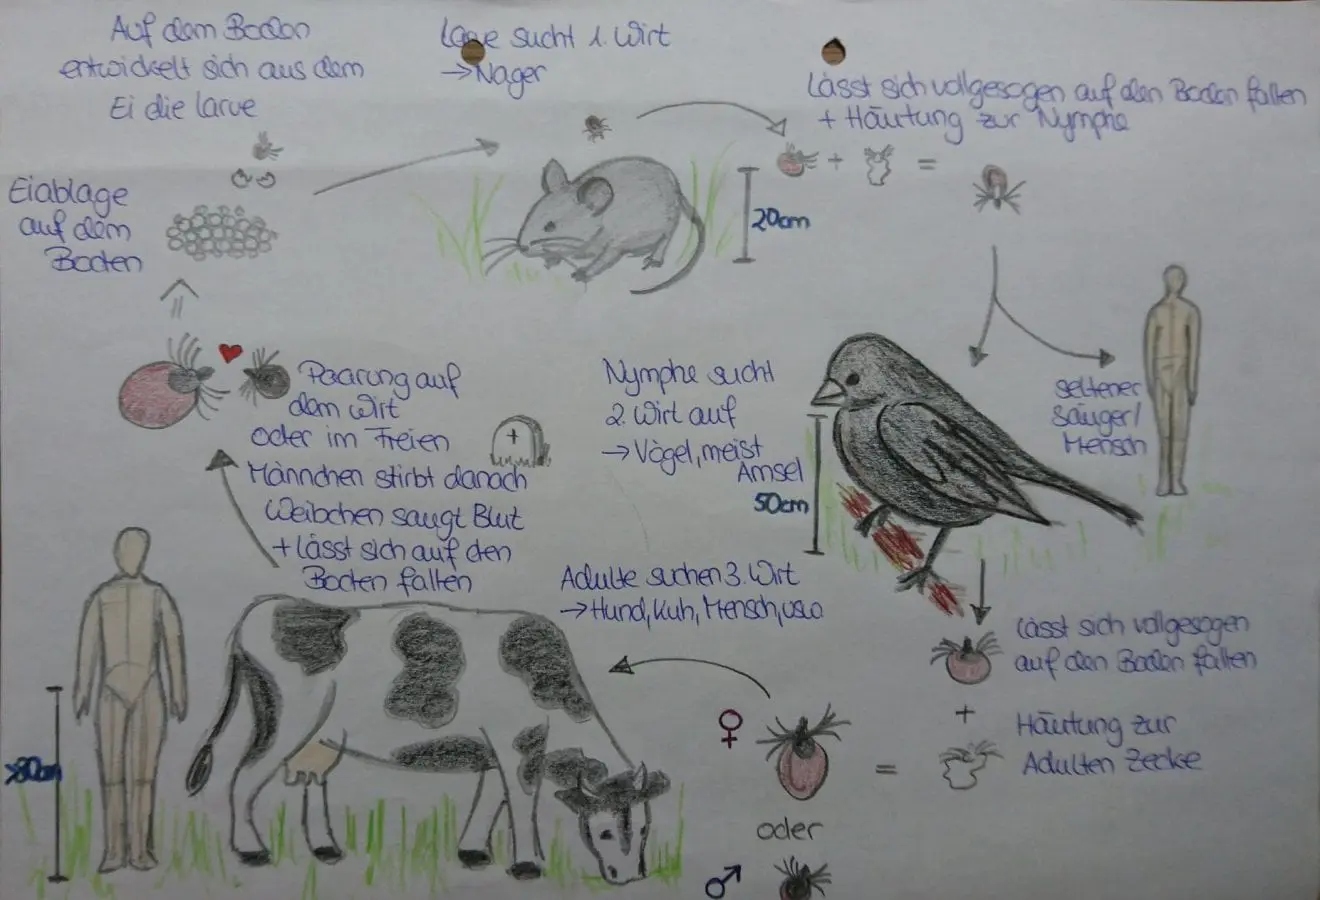 Auf dem Boden
entwickelt sich aus dem
Ei die Larve
Larve sucht 1. Wirt
→ Nager
Lässt sich vollgesogen auf den Boden fallen
+ Häutung zur Nymphe
+ =
Eiablage
auf dem
Boden
20cm
Nymphe sucht
2. Wirt auf
→ Vögel, meist
Amsel
50cm
seltener
Säuger/
Mensch
Lässt sich vollgesogen
auf den Boden fallen
+
Häutung zur
Adulten Zecke
=
♀
oder
♂
Adulte suchen 3. Wirt
→ Hund, Kuh, Mensch, usw
>80cm
Paarung auf
dem Wirt
oder im Freien
Männchen stirbt danach
Weibchen saugt Blut
+ Lässt sich auf den
Boden fallen